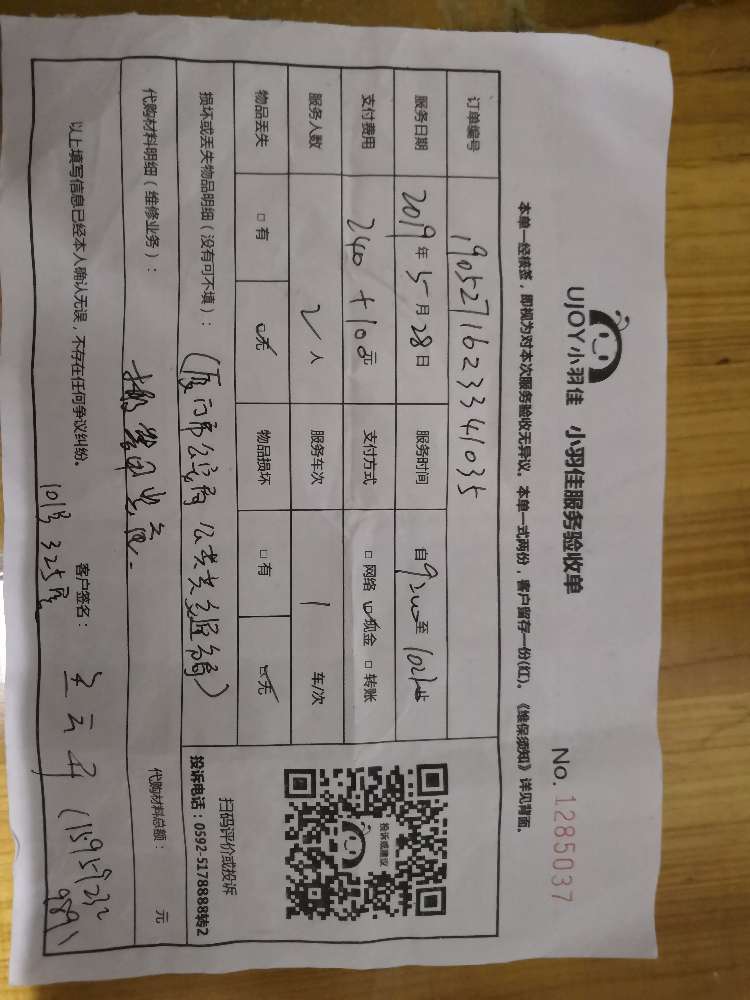 UJOY小羽佳 小羽佳服务验收单
No. 1285037
本单一经核签，即视为对本次服务验收无异议。本单一式两份，客户留存一份(红)。《维保须知》详见背面。
订单编号 1905271623341035
服务日期 2019年5月28日 服务时间 自9 至10
支付费用 240+10元 支付方式 □网络 ☑现金 □转账
服务人数 2人 服务车次 1 车/次
物品丢失 □有 ☑无 物品损坏 □有 ☑无
投诉或建议
扫码评价或投诉
投诉电话：0592-5178888转2
损坏或丢失物品明细（没有可不填）：（厦门市公
代购材料明细（维修业务）： 代购材料总额： 元
以上填写信息已经本人确认无误，不存在任何争议纠纷。 客户签名：
325